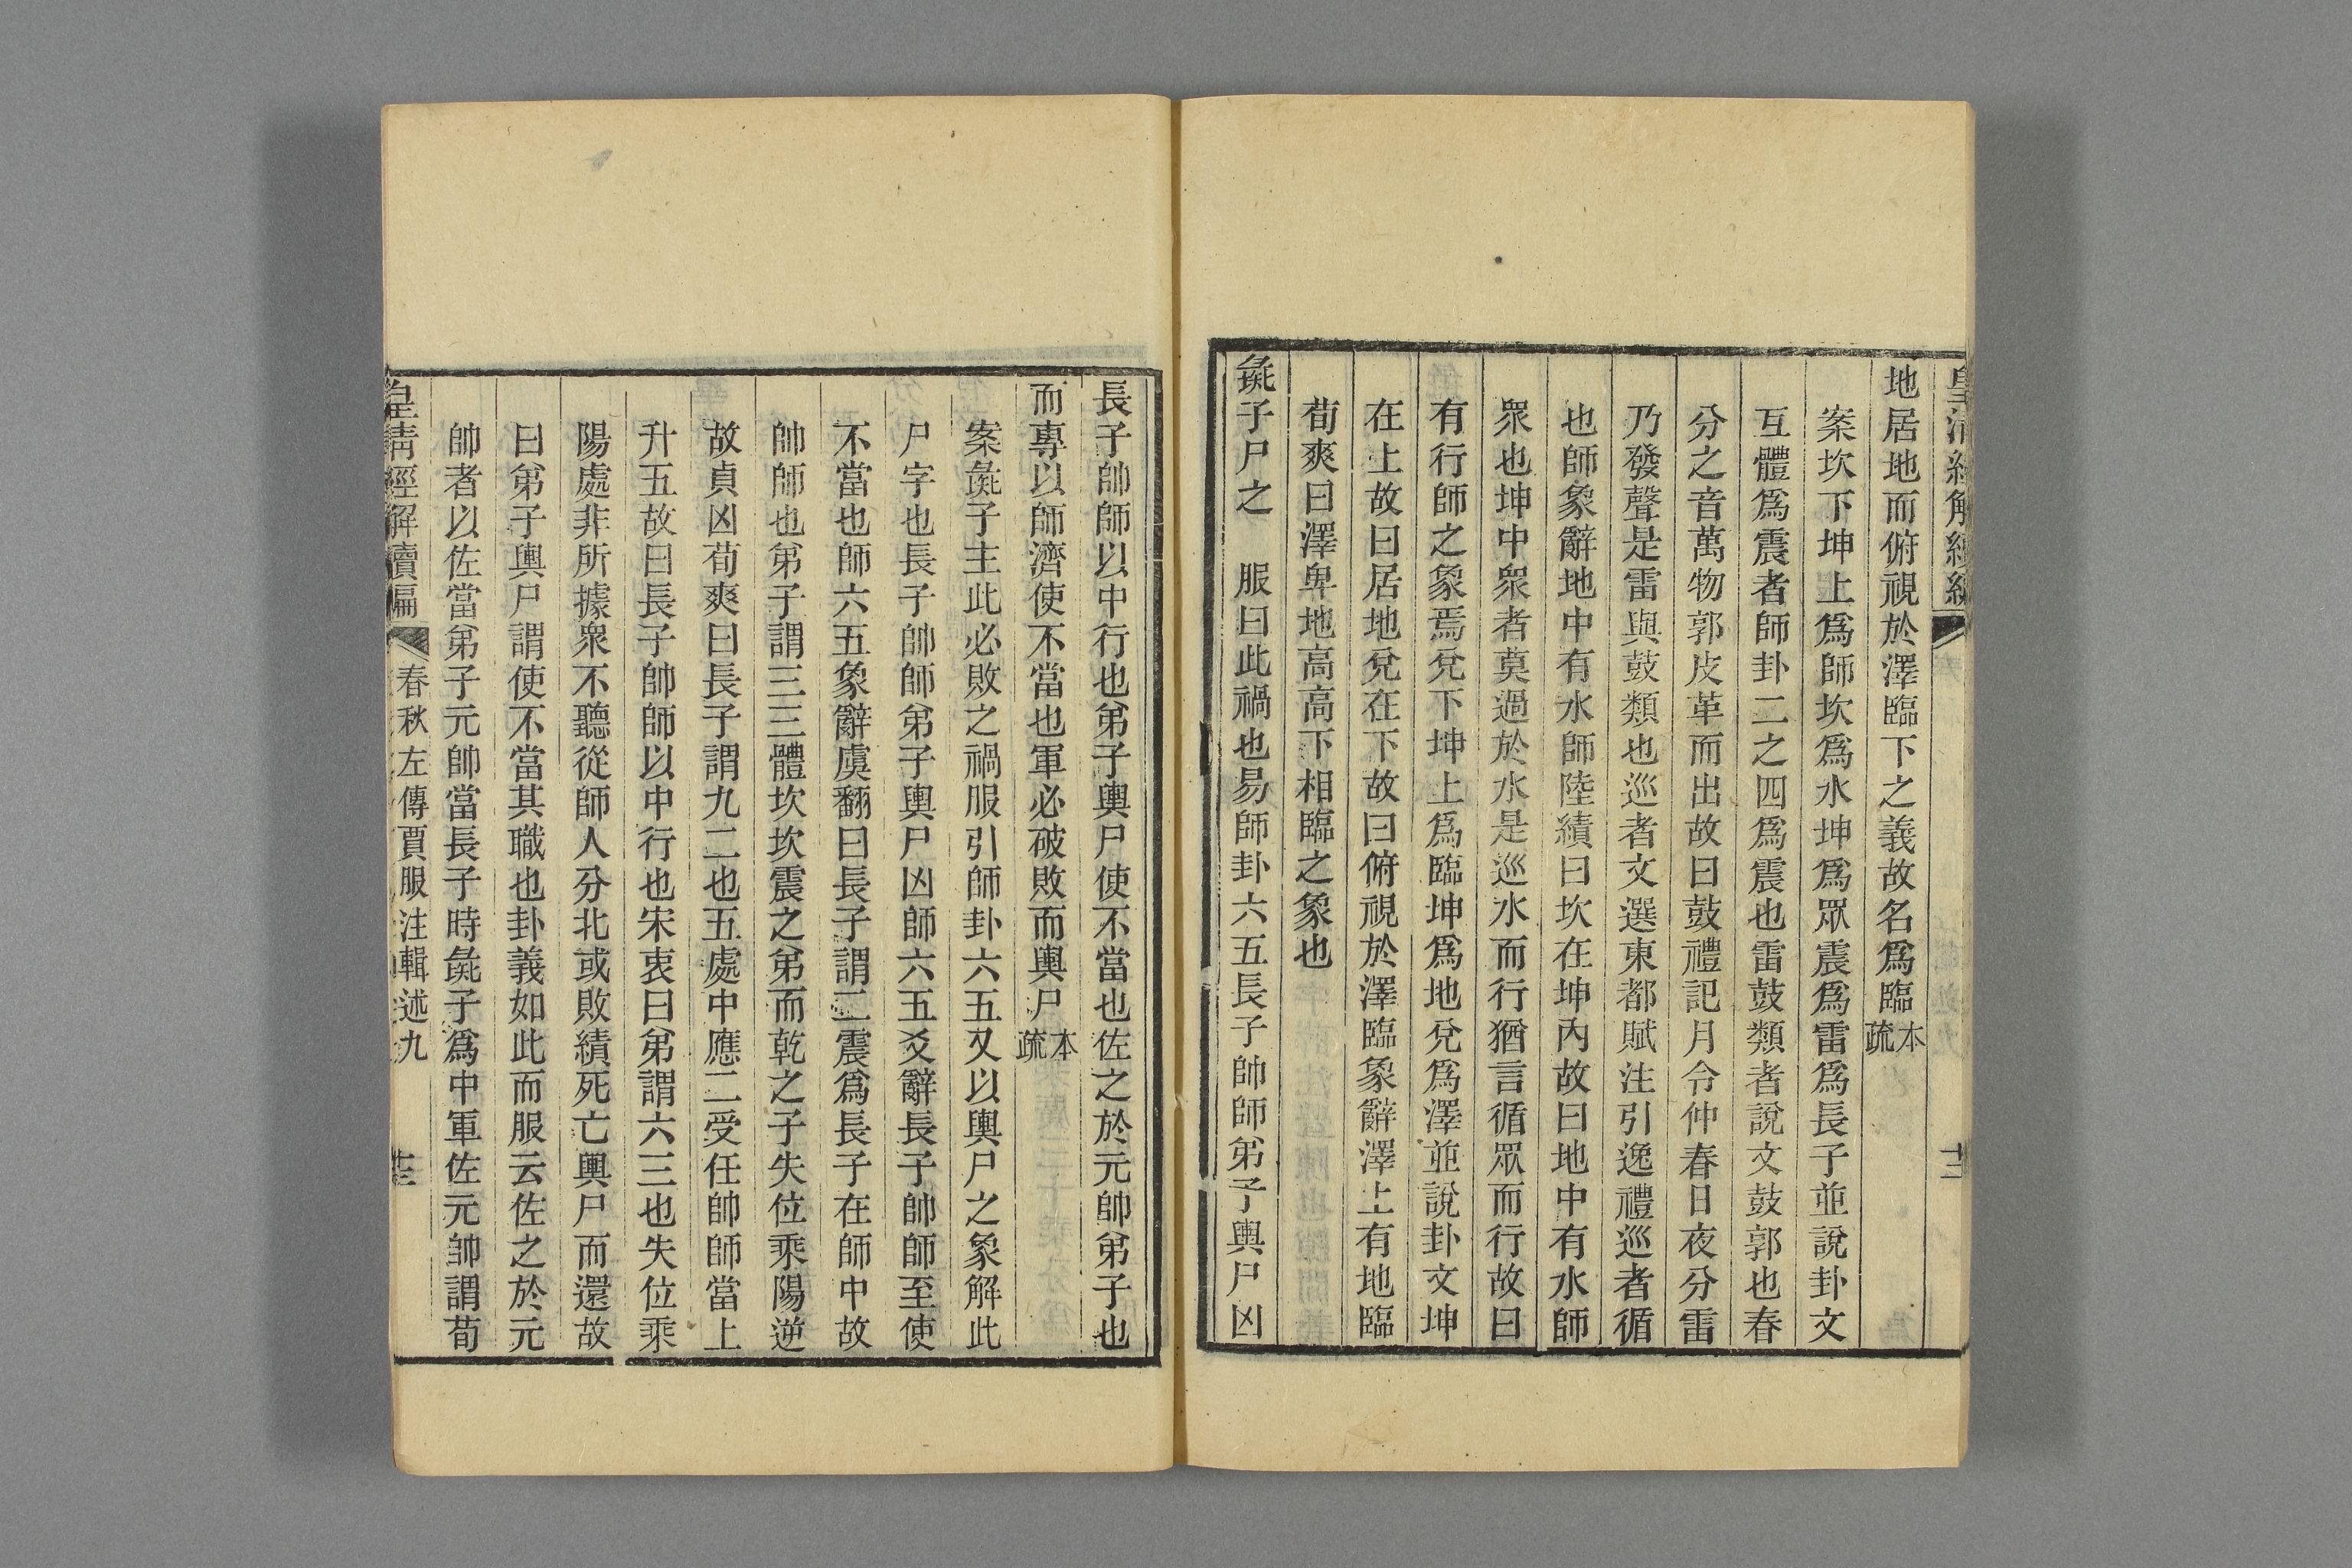 地居地而俯視於澤臨下之義故名爲臨本疏
案坎下坤上爲師坎爲水坤爲眾震爲雷爲長子並說卦文
互體爲震者師卦二之四爲震也雷鼓類者說文鼓郭也春
分之音萬物郭皮革而出故曰鼓禮記月令仲春日夜分雷
乃發聲是雷與鼓類也巡者文選東都賦注引逸禮巡者循
也師象辭地中有水師陸績曰坎在坤內故曰地中有水師
眾也坤中眾者莫過於水是巡水而行猶言循眾而行故曰
有行師之象焉兌下坤上爲臨坤爲地兌爲澤並說卦文坤
在上故曰居地兌在下故曰俯視於澤臨象辭澤上有地臨
荀爽曰澤卑地高高下相臨之象也
彘子尸之　服曰此禍也易師卦六五長子帥師弟子輿尸凶
長子帥師以中行也弟子輿尸使不當也佐之於元帥弟子也
而專以師濟使不當也軍必破敗而輿尸本疏
案彘子主此必敗之禍服引師卦六五又以輿尸之象解此
尸字也長子帥師弟子輿尸凶師六五爻辭長子帥師至使
不當也師六五象辭虞翻曰長子謂二震爲長子在師中故
帥師也弟子謂三三體坎坎震之弟而乾之子失位乘陽逆
故貞凶荀爽曰長子謂九二也五處中應二二受任帥師當上
升五故曰長子帥師以中行也宋衷曰弟謂六三也失位乘
陽處非所據眾不聽從師人分北或敗績死亡輿尸而還故
曰弟子輿尸謂使不當其職也卦義如此而服云佐之於元
帥者以佐當弟子元帥當長子時彘子爲中軍佐元帥謂荀
皇清經解續編　春秋左傳賈服注輯述九　十三